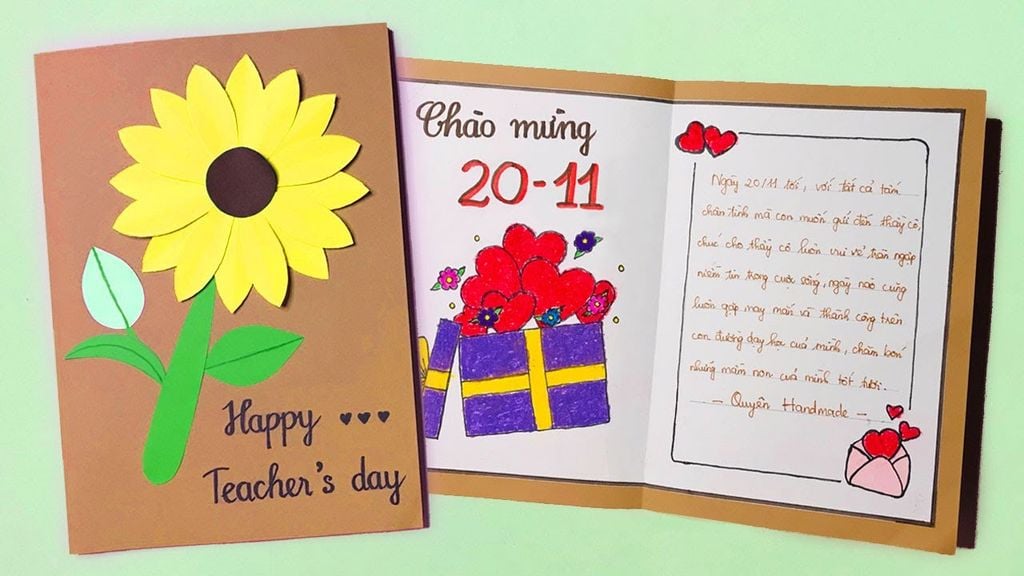 Happy
Teacher's day
Chào mừng
20-11
Ngày 20/11 tới, với tất cả tấm
chân tình mà con muốn gửi đến thầy cô,
chúc cho thầy cô luôn vui vẻ tràn ngập
niềm tin trong cuộc sống, ngày nào cũng
luôn gặp may mắn và thành công trên
con đường dạy học của mình, chăm bón
những mầm non của mình tốt tươi.
- Quyên Handmade -